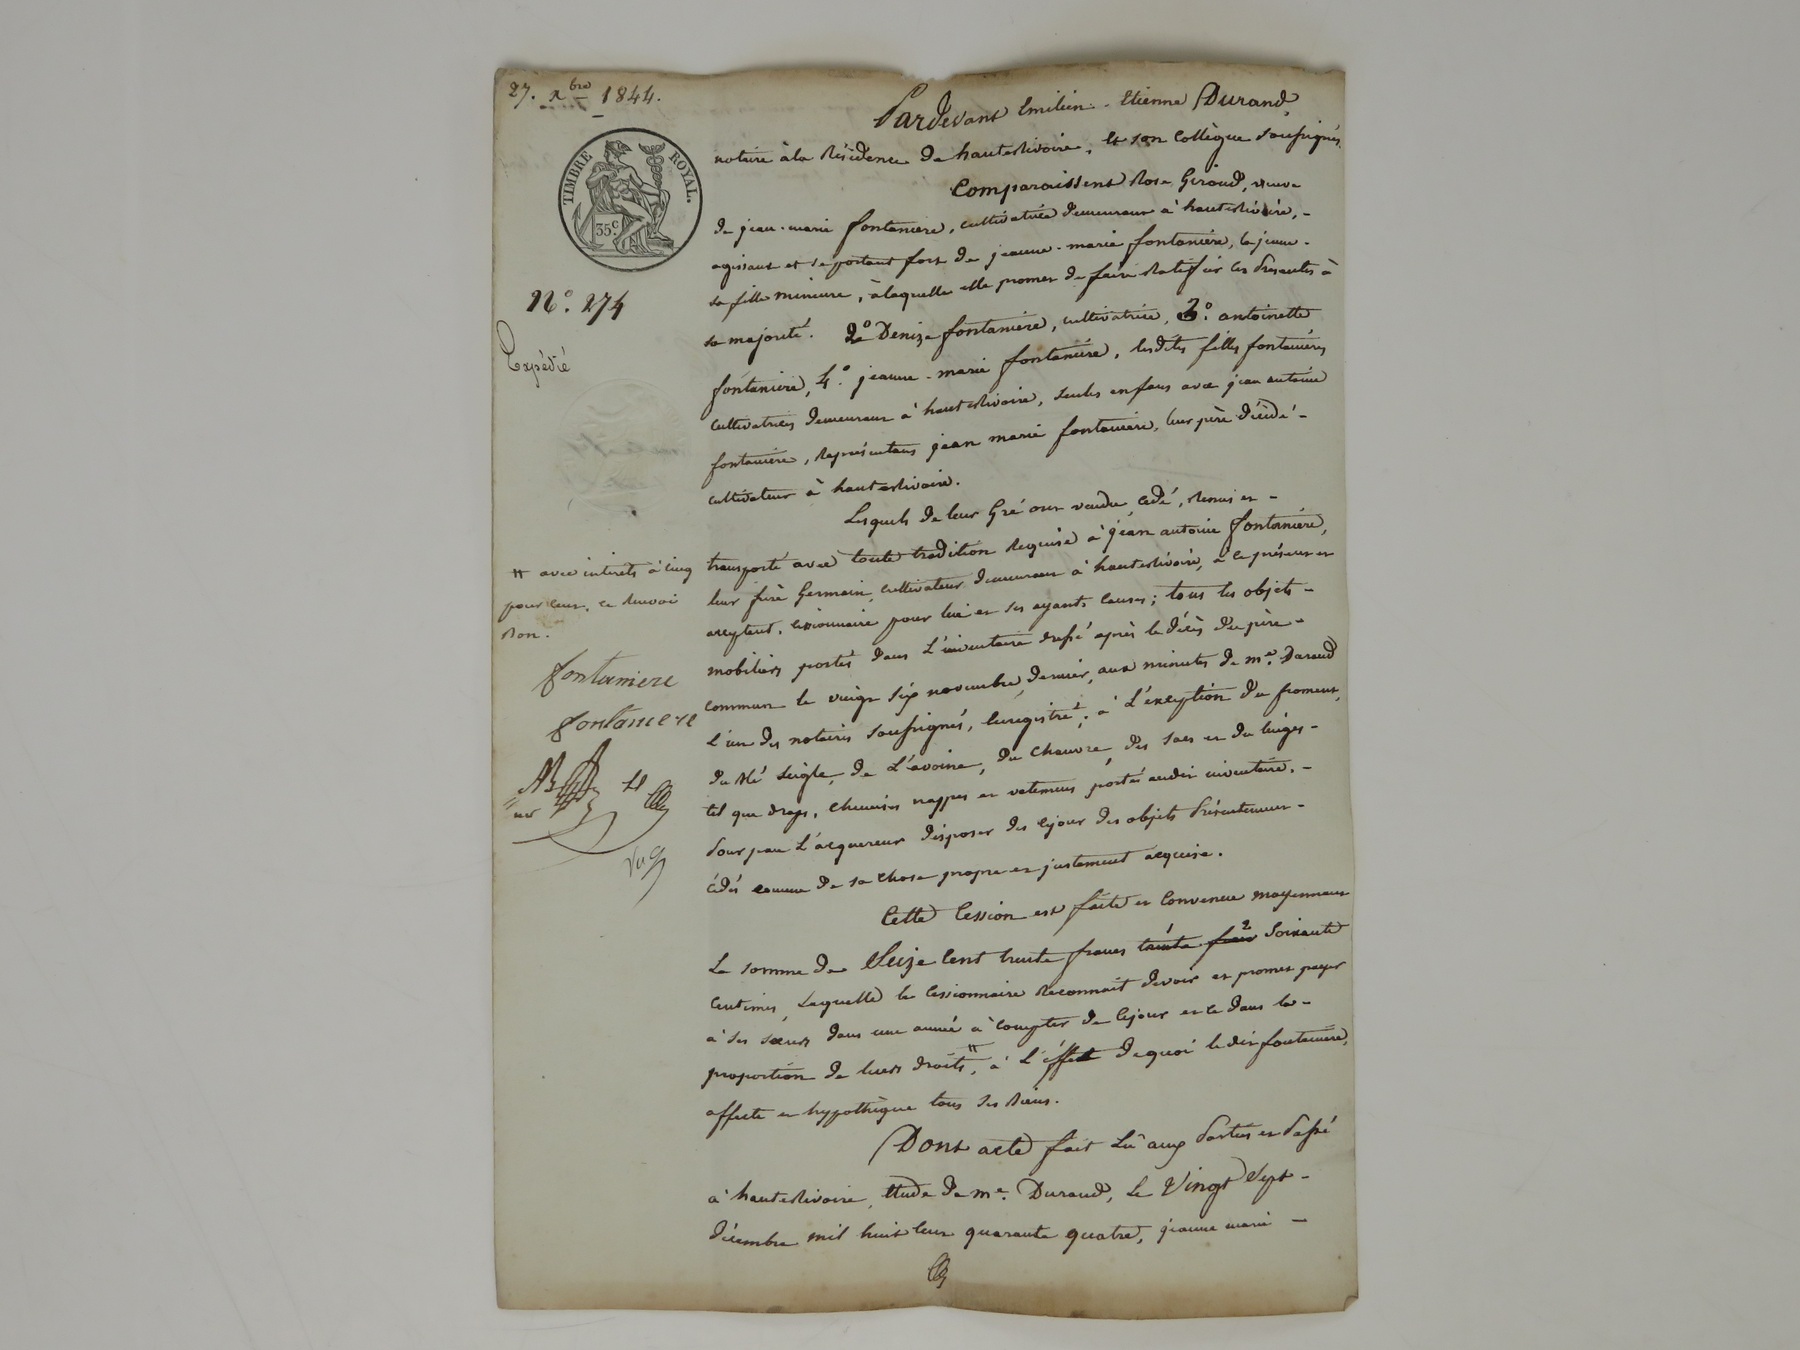 27. Xbre 1844.
TIMBRE ROYAL.
35 c.
N.o 274
Expédié
Pardevant Emilien-Etienne Durand,
notaire à la Résidence de hauterivoire, et son Collègue soussignés.
Comparaissent Rose Giroud, veuve
de jean-marie fontaniere, cultivatrice demeurant à hauterivoire,-
agissant et se portant fort de jeanne-marie fontaniére, la jeune-
sa fille mineure, à laquelle elle promet de faire Ratifier les Présentes à
sa majorité. 2o Denize fontaniére, cultivatrice, 3o. antoinette
fontaniere, 4o. jeanne-marie fontaniére, lesdites filles fontaniéres
cultivatrices demeurant à hauterivoire, seules enfans avec jean antoine
fontaniére, Représentans jean marie fontaniére, leur père décédé-
cultivateur à hauterivoire.
Lesquels de leur Gré ont vendu, cédé, Remis et-
transporté avec toute tradition Requise à jean antoine fontaniére,
leur frère Germain, cultivateur demeurant à hauterivoire, à ce présent et
acceptant, cessionnaire pour lui et ses ayants causes; tous les objets-
mobiliers portés dans L'inventaire dressé après le décès du père-
commun le vingt six novembre dernier, aux minutes de me. Durand
l'un des notaires soussignés, Enregistré; à L'exception du froment,
du Blé Seigle, de L'avoine, du chanvre, des sacs et du linges-
tel que draps, chemises nappes et vetemens portés audit inventaire,-
Pour par L'acquereur disposer dès cejour des objets Présentement-
cédés comme de sa chose propre et justement acquise.
Cette Cession est faite et Convenue moyennant
La somme de Seize Cent trente francs trente francs Soixante
Centimes, Laquelle le cessionnaire Reconnait devoir et promet payer
à ses sœurs dans une année à compter de cejour et ce dans la-
proportion de leurs droits, # à L'effet de quoi le dit fontaniere,
affecte et hypothèque tous ses Biens.
Dont acte fait Lû aux Parties et Passé
à hauterivoire, étude de me. Durand, Le Vingt Sept-
décembre mil huit cent quarante quatre, jeanne marie-
# avec intérêts à cinq
pour cent, ce Renvoi
Bon.
fontaniere
fontaniere